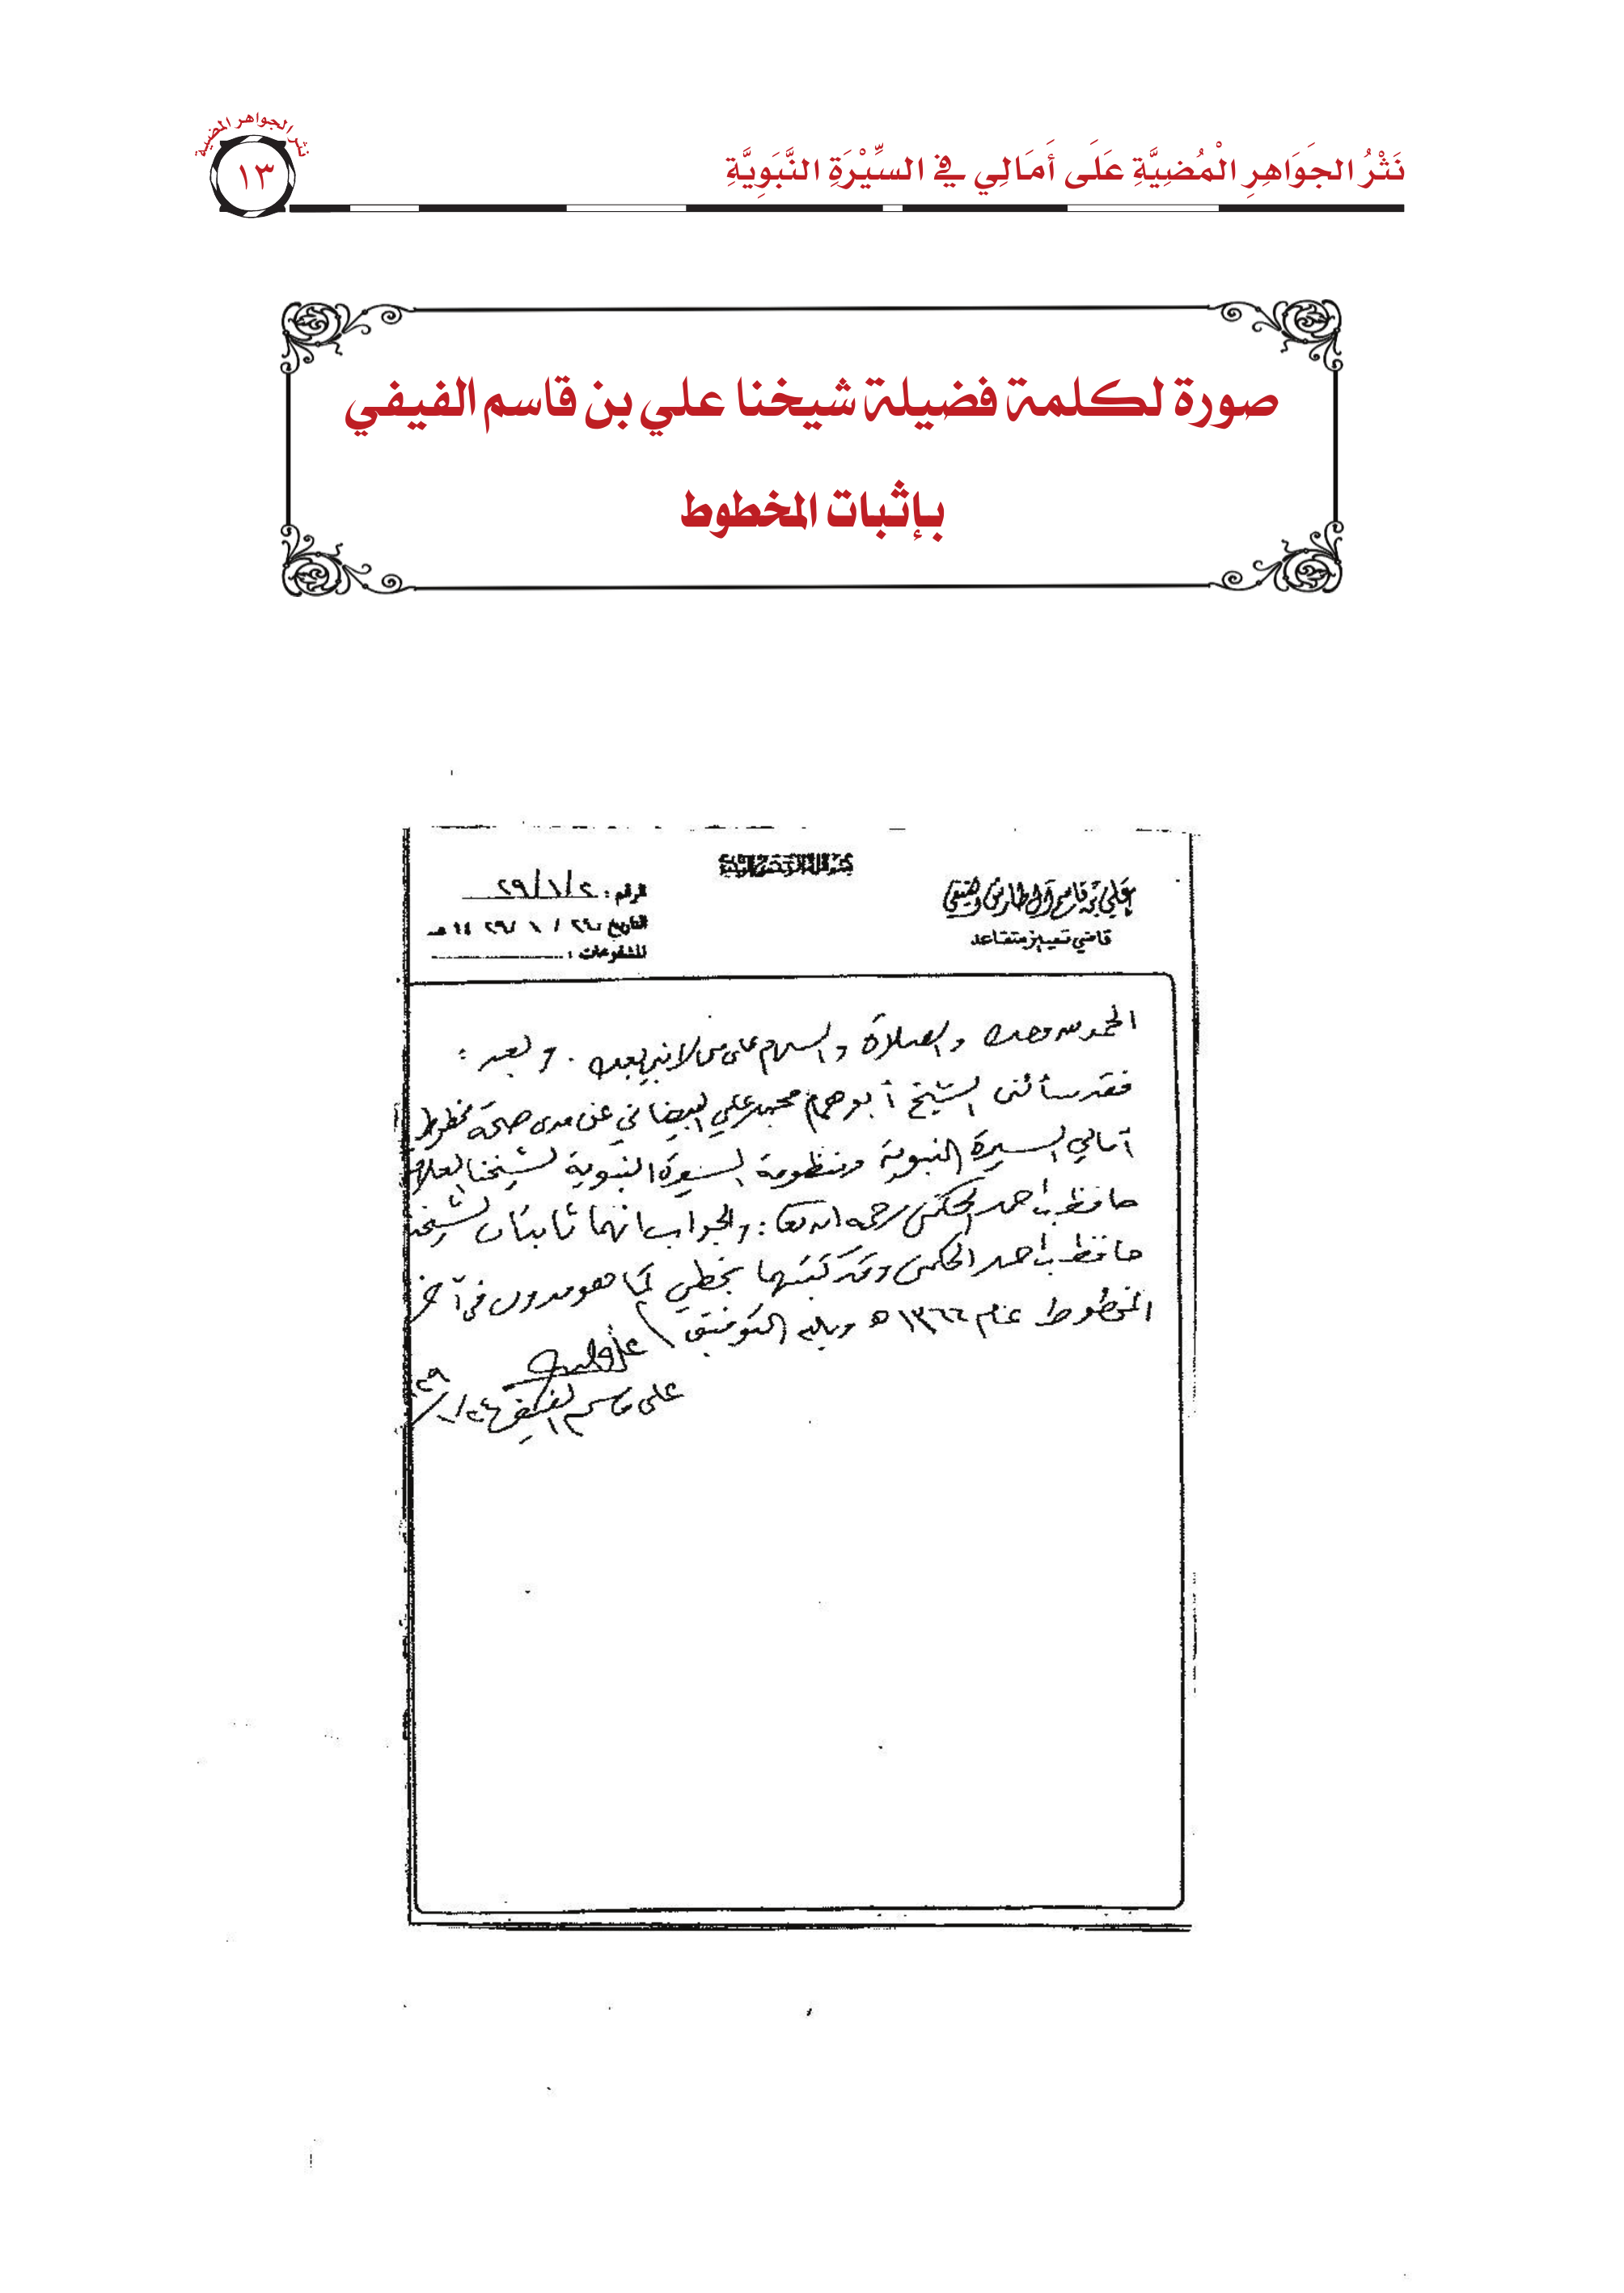 نَثْرُ الجَوَاهِرِ الْمُضِيَّةِ عَلَى أَمَالِي في السِّيْرَةِ النَّبَوِيَّةِ
نثر الجواهر المضية
١٣
صورة لكلمة فضيلة شيخنا علي بن قاسم الفيفي
بإثبات المخطوط
بسم الله الرحمن الرحيم
علي بن قاسم آل طارش الفيفي
قاضي تمييز متقاعد
الرقم : ٢٩/١/٢
التاريخ ٢٤ / ١ / ١٤٢٩ هـ
المشفوعات :
الحمد لله وحده والصلاة والسلام على من لا نبي بعده . وبعد :
فقد سألني الشيخ أبو همام محمد علي البيضاني عن مدى صحة مخطوط
أمالي السيرة النبوية ومنظومة السيرة النبوية لشيخنا العلامة
حافظ بن أحمد الحكمي رحمه الله تعالى : والجواب انهما ثابتان لشيخنا
حافظ بن أحمد الحكمي وقد كتبتهما بخطي كما هو مدون في آخر
المخطوط عام ١٣٦٦ه وبالله التوفيق
علي قاسم الفيفي ٢٤/١/٢٩